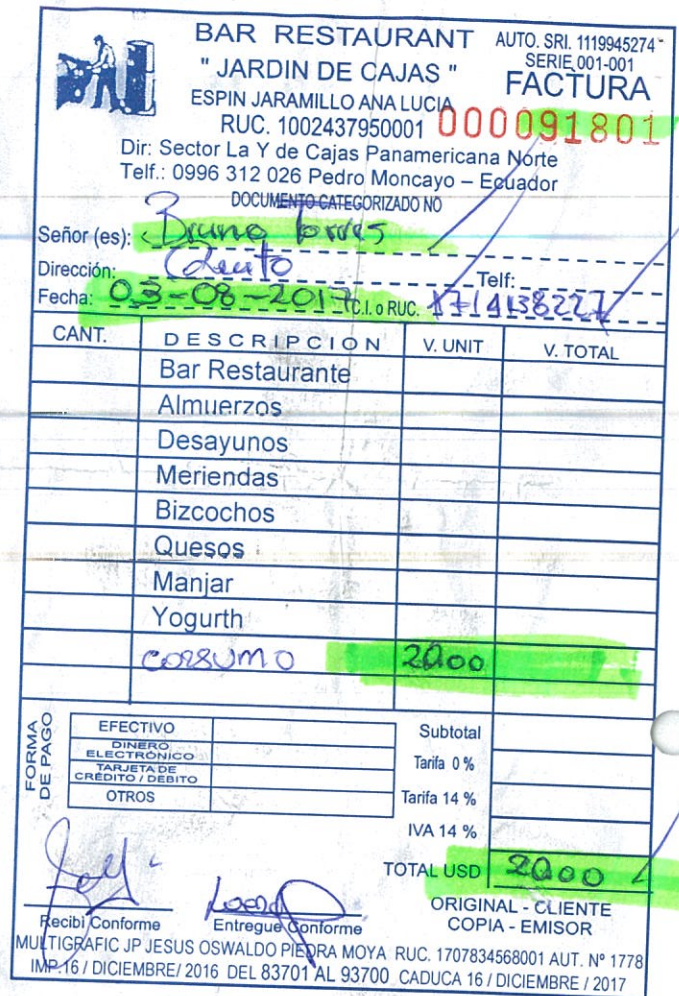 BAR RESTAURANT
" JARDIN DE CAJAS "
ESPIN JARAMILLO ANA LUCIA
RUC. 1002437950001
AUTO. SRI. 1119945274
SERIE 001-001
FACTURA
000091801
Dir: Sector La Y de Cajas Panamericana Norte
Telf.: 0996 312 026 Pedro Moncayo – Ecuador
DOCUMENTO CATEGORIZADO NO
Señor (es): Bruno Torres
Dirección: Telf:
Fecha: 03-08-2017 C.I. o RUC. 1714138227
CANT. DESCRIPCION V. UNIT V. TOTAL
Bar Restaurante
Almuerzos
Desayunos
Meriendas
Bizcochos
Quesos
Manjar
Yogurth
consumo 20.00
FORMA DE PAGO
EFECTIVO
DINERO ELECTRÓNICO
TARJETA DE CRÉDITO / DÉBITO
OTROS
Subtotal
Tarifa 0 %
Tarifa 14 %
IVA 14 %
TOTAL USD 20.00
Recibí Conforme Entregue Conforme
ORIGINAL - CLIENTE
COPIA - EMISOR
MULTIGRAFIC JP JESUS OSWALDO PIEDRA MOYA RUC. 1707834568001 AUT. Nº 1778
IMP.16 / DICIEMBRE/ 2016 DEL 83701 AL 93700 CADUCA 16 / DICIEMBRE / 2017